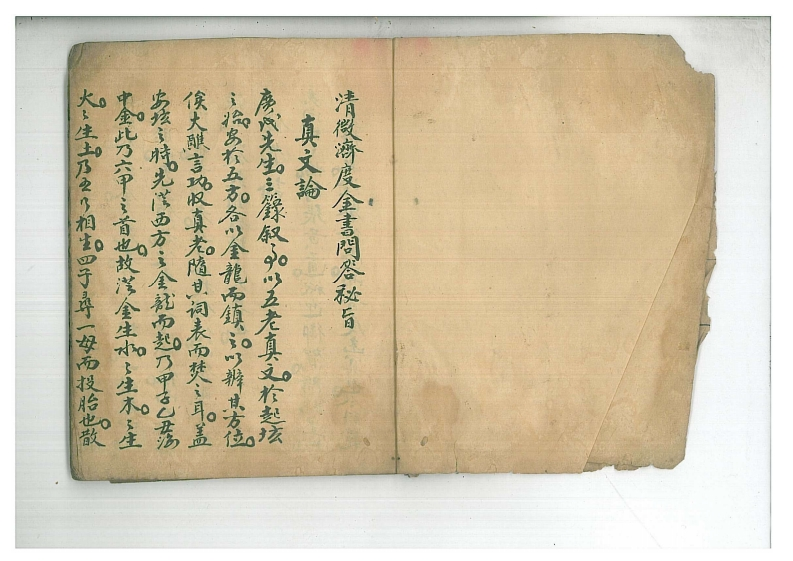 清微濟度金書問答秘旨
真文論
庚戌先生三籙叙事以五老真文於起垓
之始安於五方各以金龍而鎮之以辨其方位
俟大醮言功收真老隨其詞表而焚之耳盖
安垓之時先從西方之金龍而起乃甲子乙丑海
中金此乃六甲之首也故從金生水之生木之生
火之生土乃五行相生四子尋一母而投胎也散